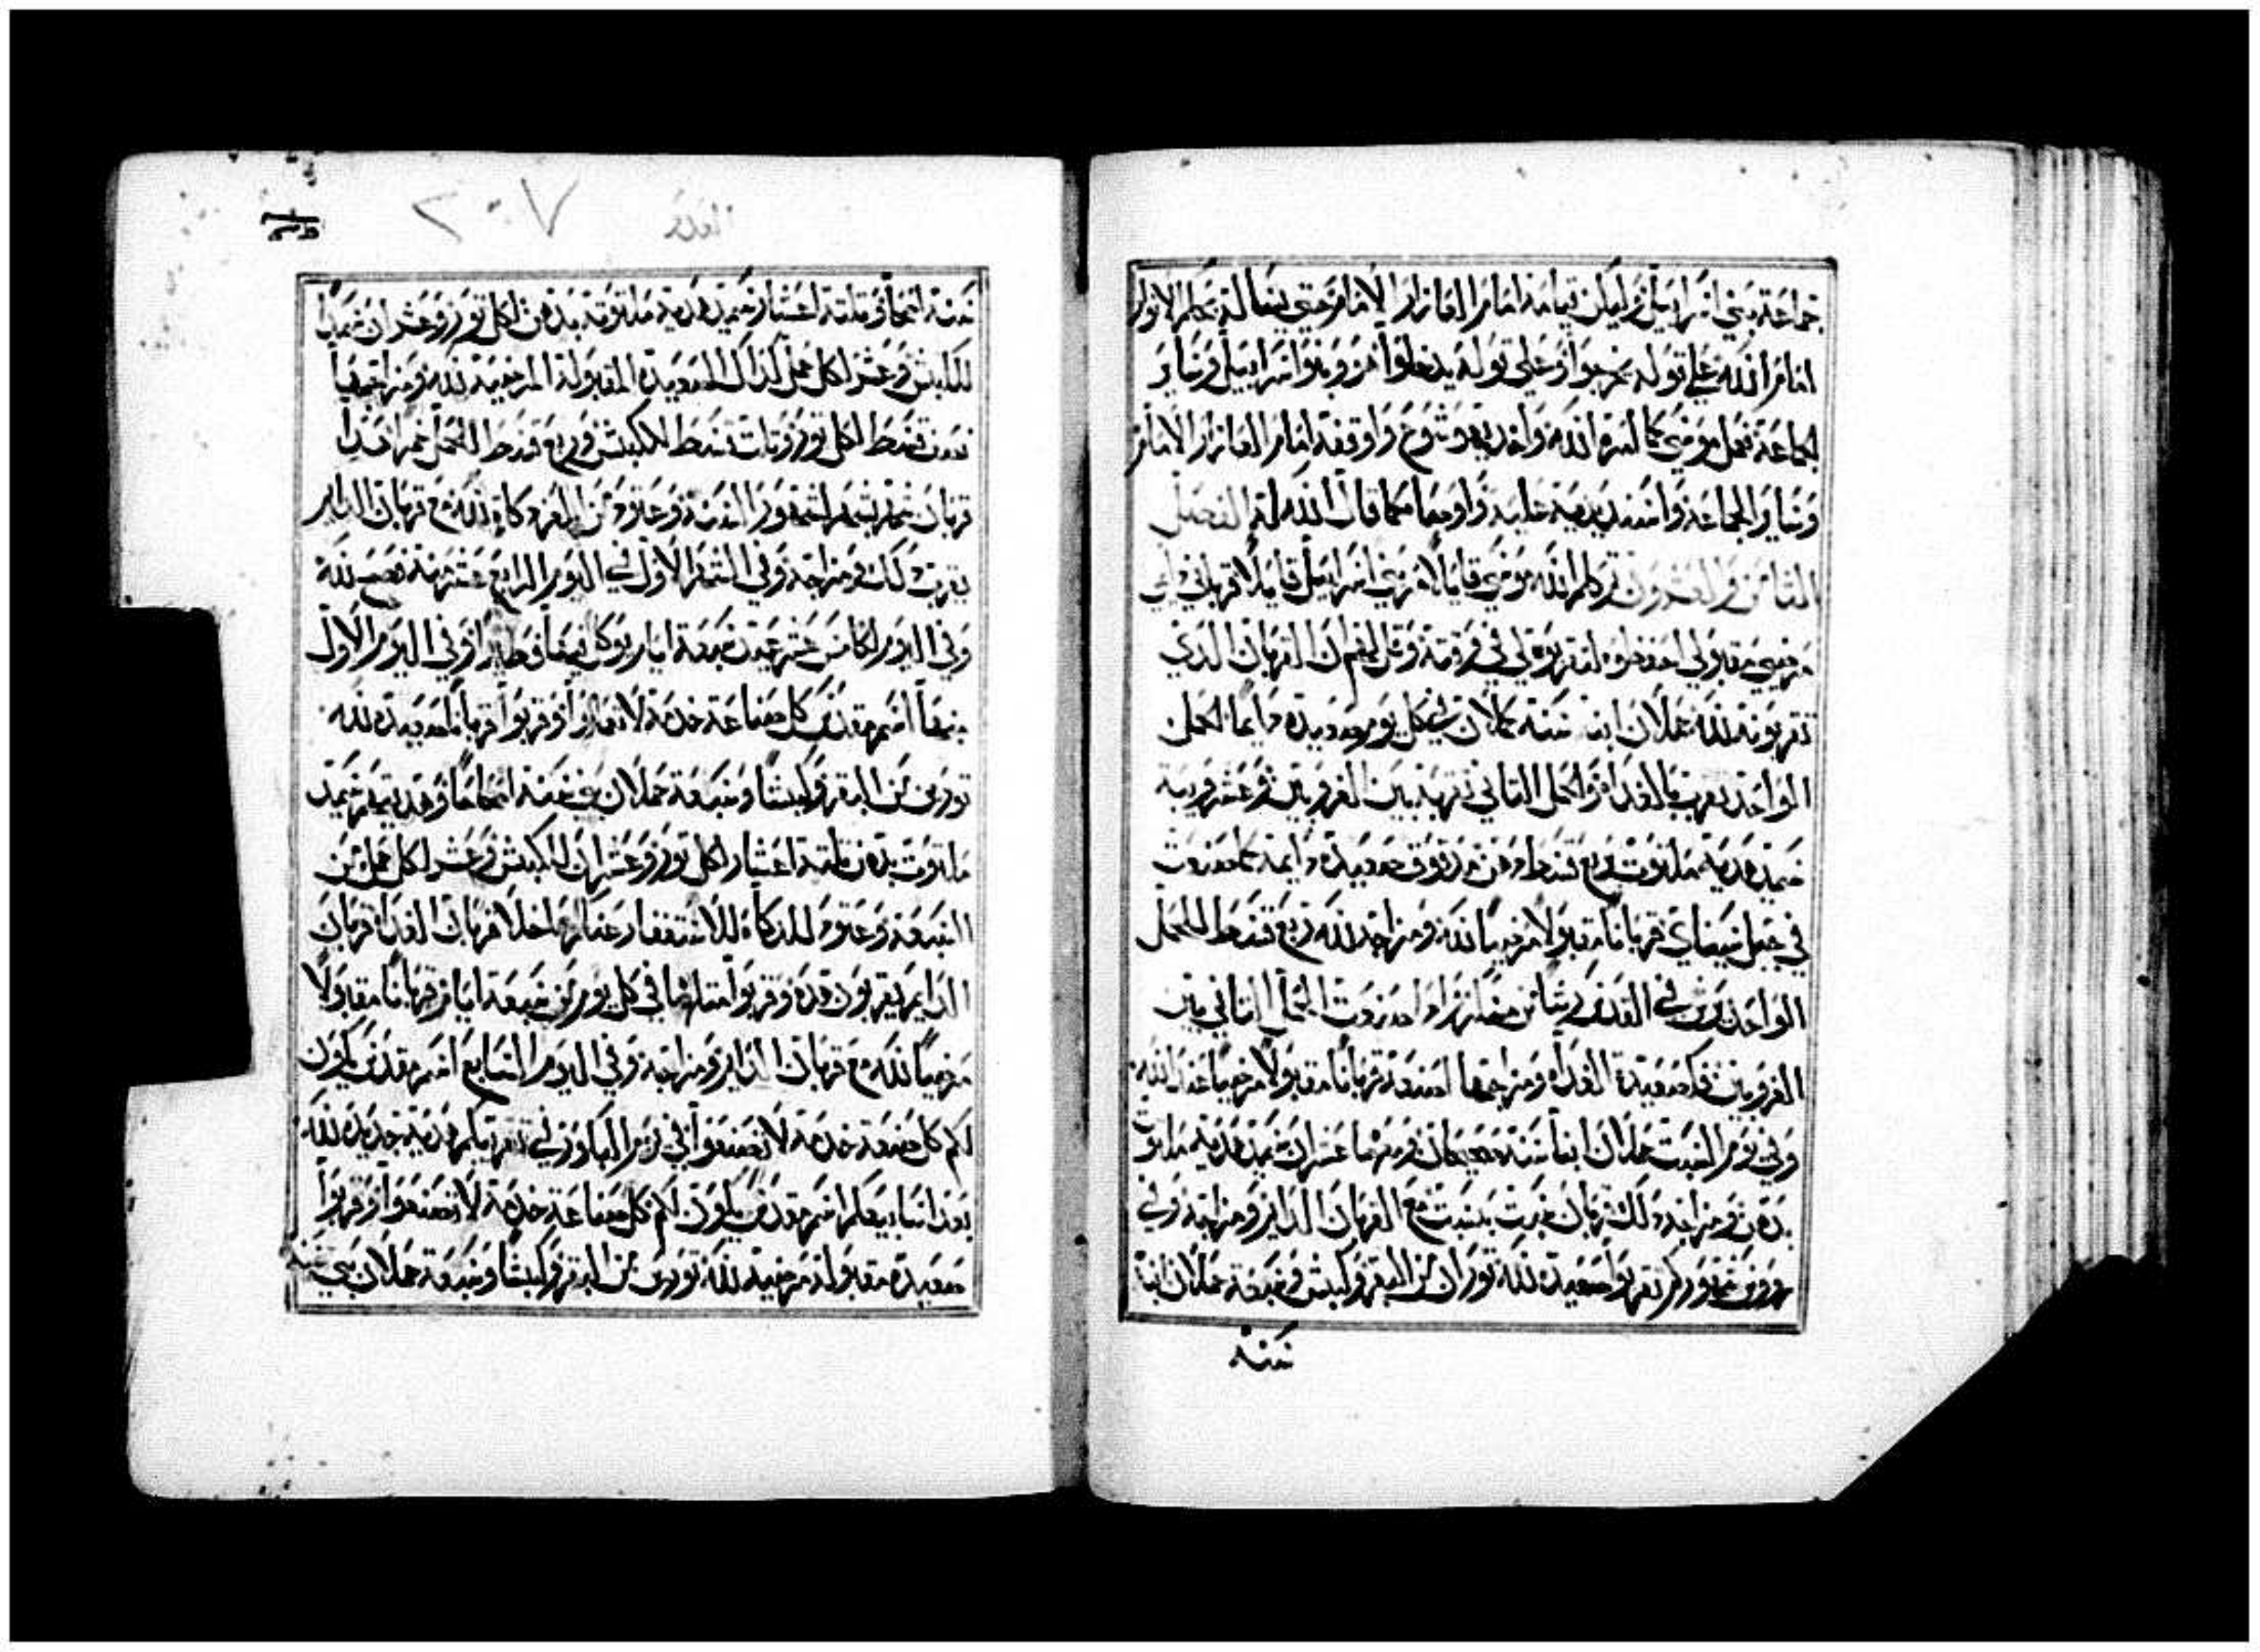 جماعة بني اسرايل وليكن قيامه امام العازار الامام حتى يسال له بحكم الانوار
امام الله على قوله يخرجوا وعلى قوله يدخلوا هو وبنو اسراييل وساير
الجماعة فعمل موسى كما امره الله واخذ يهوشوع واوقفه امام العازار الامام
وساير الجماعة واسند يديه عليه واوصاه كما قال الله له الفصل
الثامن والعشرون ثم كلم الله موسى قايلا امر بني اسراييل قايلا قرباني
مرضي مقبولي احفظوه لتقربوه لي في وقته وقل لهم ان القربان الذي
تقربونه لله حملان ابنا سنة كاملان في كل يوم صعيدة دايما الحمل
الواحد يقرب بالغداة والحمل الثاني تقربه بين الغروبين وعشر ويبة
سميد هدية ملتوت بربع قسط دهن مدقوق صعيدة دايمة كما صنعت
في جبل سيناي قربانا مقبولا مرضيا لله ومزاجه لله ربع قسط للحمل
الواحد يرش في القدس
الغروبين فكصعيدة الغداة ومزاجها اصنعه قربانا مقبولا مرضيا عند الله
وفي يوم السبت حملان ابنا سنة صحيحان ومعهما عشران سميد هدية ملتوت
بدهن ومزاجه ذلك قربان سبت بسبت مع القربان الداير ومزاجه وفي
روس شهوركم تقربوا صعيدة لله ثوران من البقر وكبش وسبعة حملان ابنا
سنة
٢٠٧
سنة اصحا وثلثة اعشار سميد هدية ملتوتة بدهن لكل ثور وعشران سميدا
للكبش وعشر لكل حمل لذلك الصعيدة المقبولة المرضية لله ومزاجها
نصف قسط لكل ثور وثلث قسط للكبش وربع قسط للحمل خمرا هذا
قربان شهر بشهر لشهور السنة وعتود من المعز ذكاة لله مع قربان الداير
يقرب ذلك ومزاجه وفي الشهر الاول في اليوم الرابع عشر منه فصح لله
وفي اليوم الخامس عشر عيد سبعة ايام يوكل فيها فطيرا وفي اليوم الاول
منها اسم مقدس كل صناعة خدمة لا تعملوا وقربوا قربانا صعيدة لله
ثورين من البقر وكبشا وسبعة حملان بني سنة اصحاحا وهديتهم سميد
ملتوت بدهن ثلثة اعشار لكل ثور وعشران للكبش وعشر لكل حمل من
السبعة وعتود للذكاة للاستغفار عنكم ما خلا قربان الغداة قربان
الدايم يقربون هذه وقربوا مثلها في كل يوم من سبعة ايام قربانا مقبولا
مرضيا لله مع قربان الداير ومزاجه وفي اليوم السابع اسم مقدس يكون
لكم كل صنعة خدمة لا تصنعوا في يوم الباكور في تقريبكم هدية جديدة لله
بعد اسابيعكم اسم مقدس يكون لكم كل صناعة خدمة لا تصنعوا وقربوا
صعيدة مقبولة مرضية لله ثورين من البقر وكبشا وسبعة حملان بني سنة